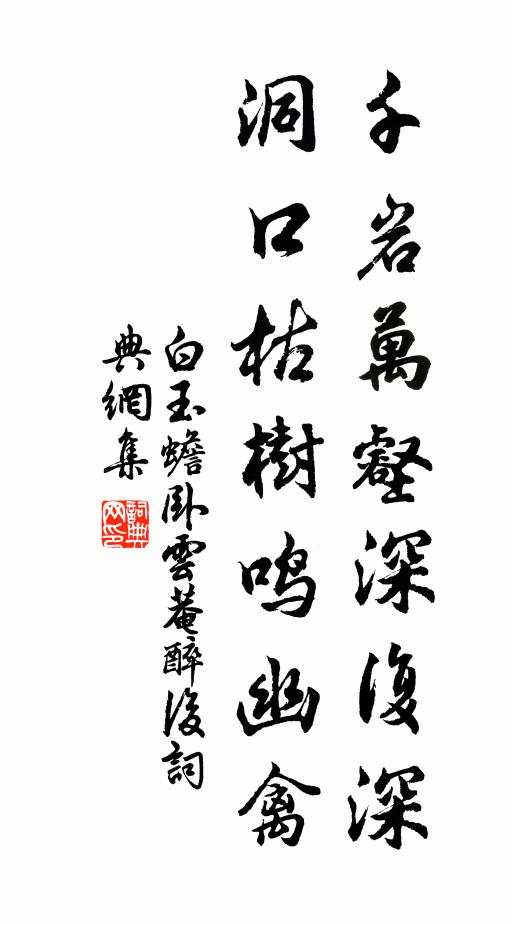 千岩萬壑深復深
洞口枯樹鸣幽禽
白玉蟾卧雲菴醉後詞
典網集
詞典网印